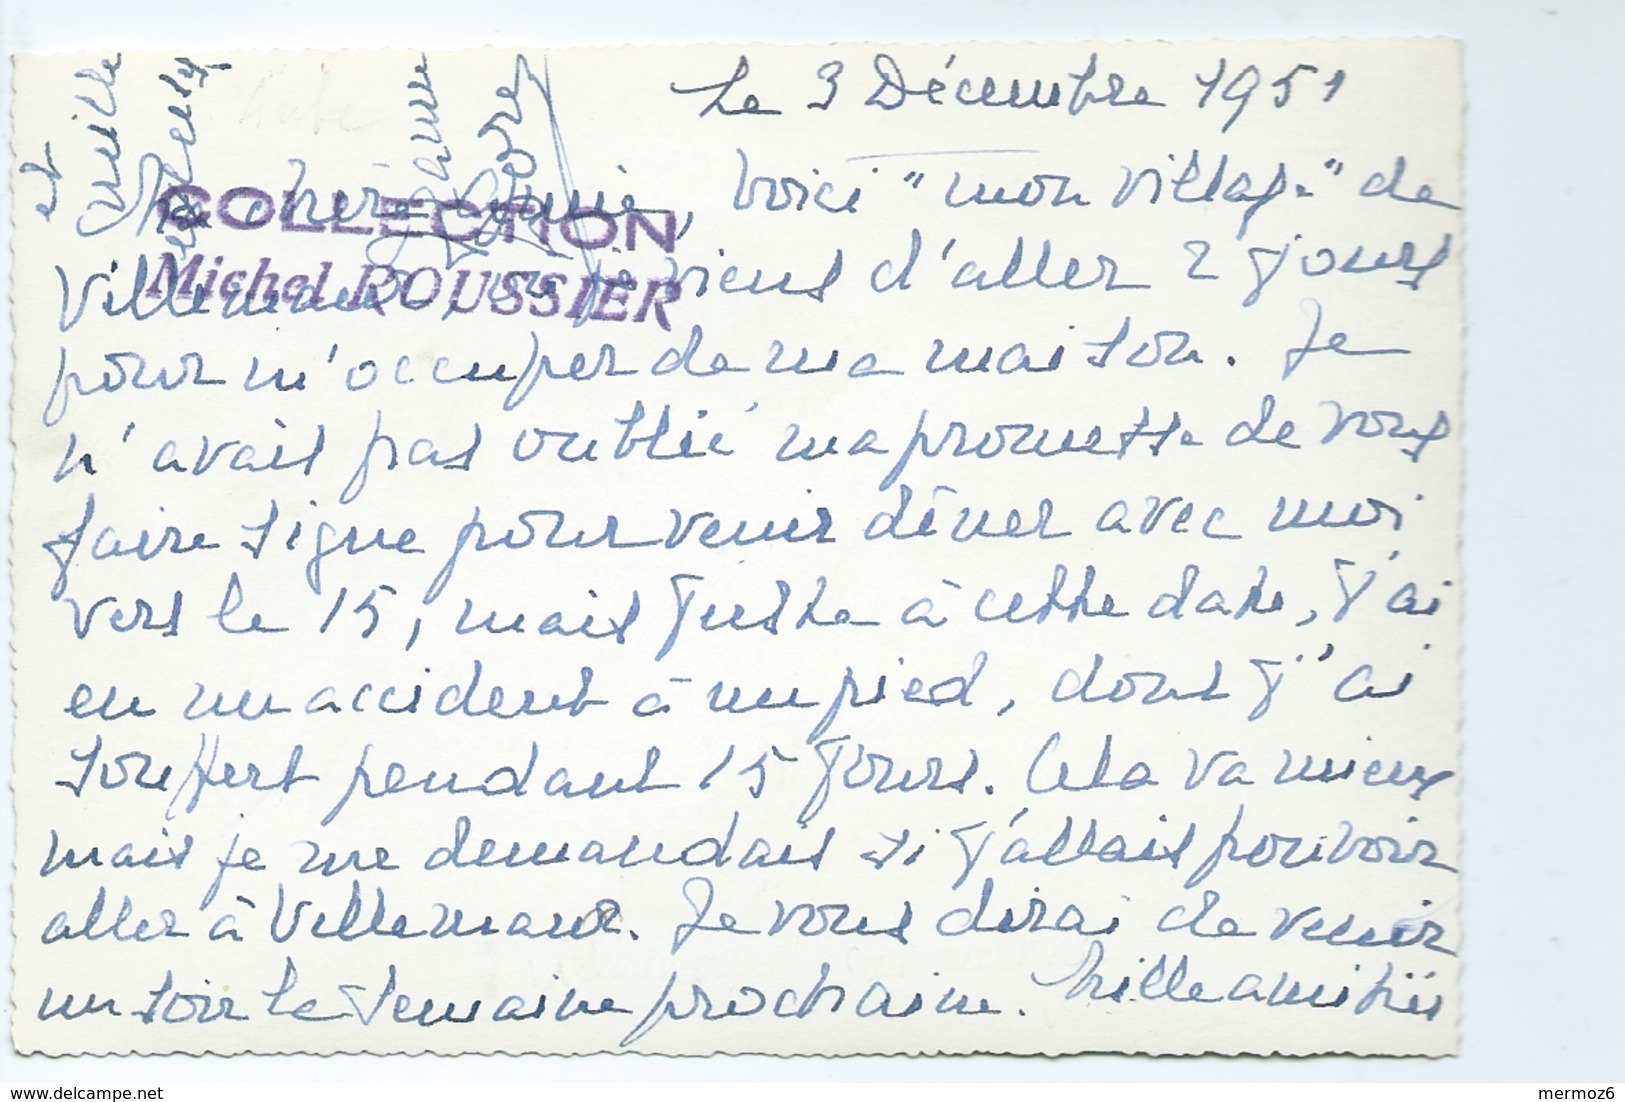 Le 3 Décembre 1951
Ma chère amie, voici "mon village" de
Villemaur, où je viens d'aller 2 jours
pour m'occuper de ma maison. Je
n'avais pas oublié ma promesse de vous
faire signe pour venir dîner avec moi
vers le 15, mais juste à cette date, j'ai
eu un accident à un pied, dont j'ai
souffert pendant 15 jours. Cela va mieux
mais je me demandais si j'allais pouvoir
aller à Villemaur. Je vous dirai de venir
un soir la semaine prochaine. Mille amitiés
et
COLLECTION
Michel ROUSSIER
mermoz6